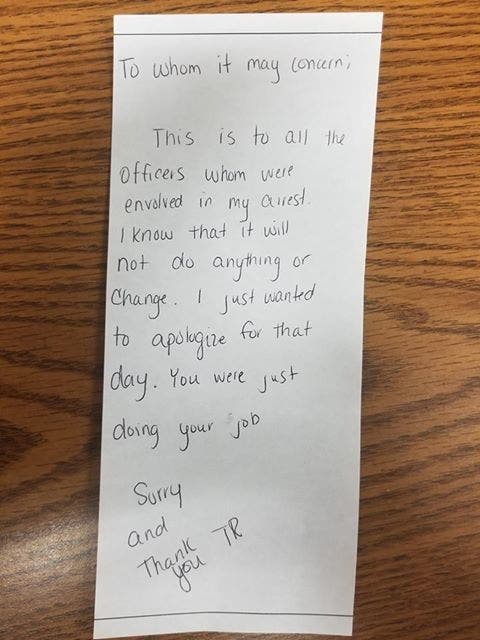 To whom it may concern;
This is to all the
officers whom were
envolved in my arrest.
I know that it will
not do anything or
Change. I just wanted
to apologize for that
day. You were just
doing your job
Sorry
and
Thank
you TR